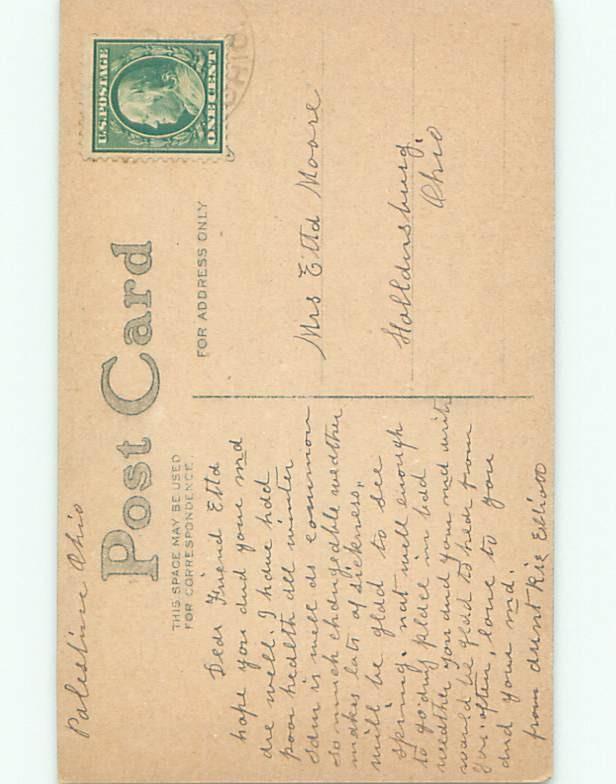 Palestine Ohio
Post Card
THIS SPACE MAY BE USED
FOR CORRESPONDENCE.
FOR ADDRESS ONLY
U.S. POSTAGE
ONE CENT
OHIO
Dear Friend Etta
hope you and your ma
are well. I have had
poor health all winter
Sam is well as common
so much changeable weather
makes lots of sickness.
will be glad to see
spring. not well enough
to go any place in bad
weather you and your ma write
would be glad to hear from
you often, love to you
and your ma.
from aunt Elliott
Mrs Etta Moore
Hollansburg.
Ohio